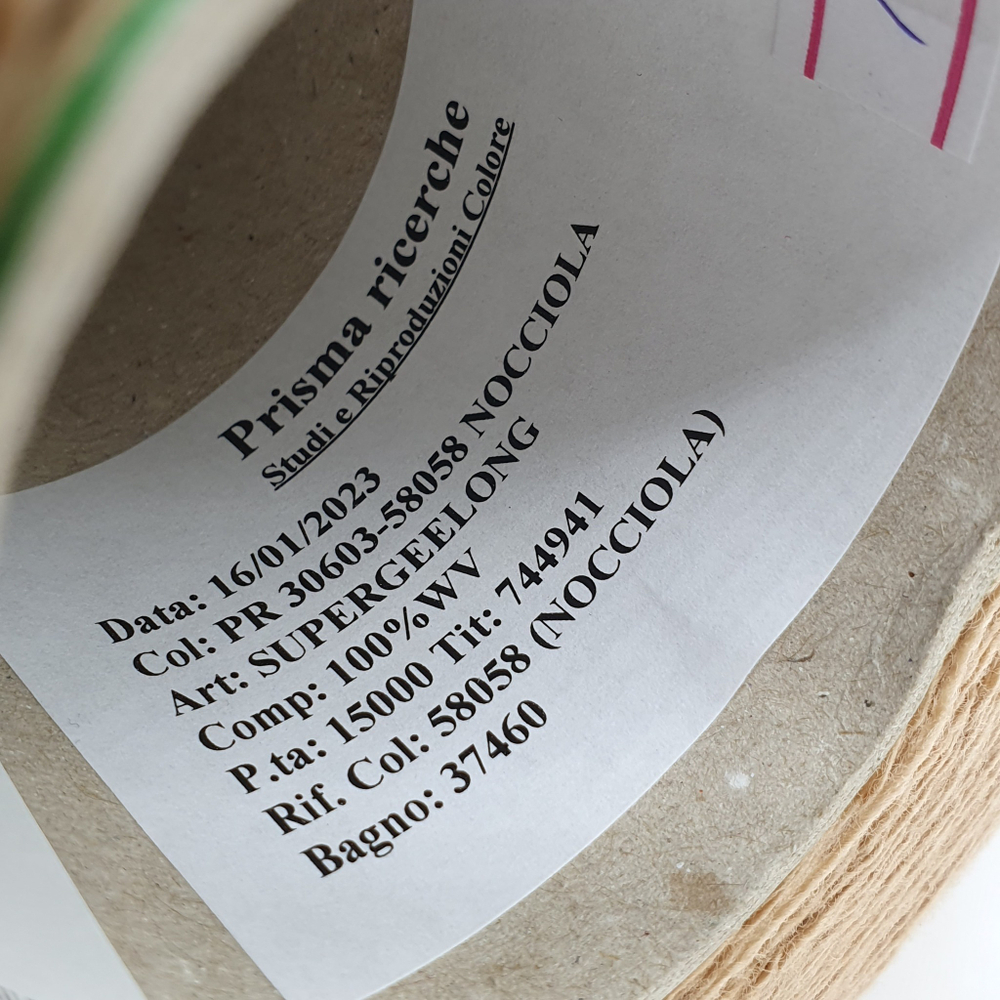 Prisma ricerche
Studi e Riproduzioni Colore
Data: 16/01/2023
Col: PR 30603-58058 NOCCIOLA
Art: SUPERGEELONG
Comp: 100%WV
P.ta: 15000 Tit: 744941
Rif. Col: 58058 (NOCCIOLA)
Bagno: 37460